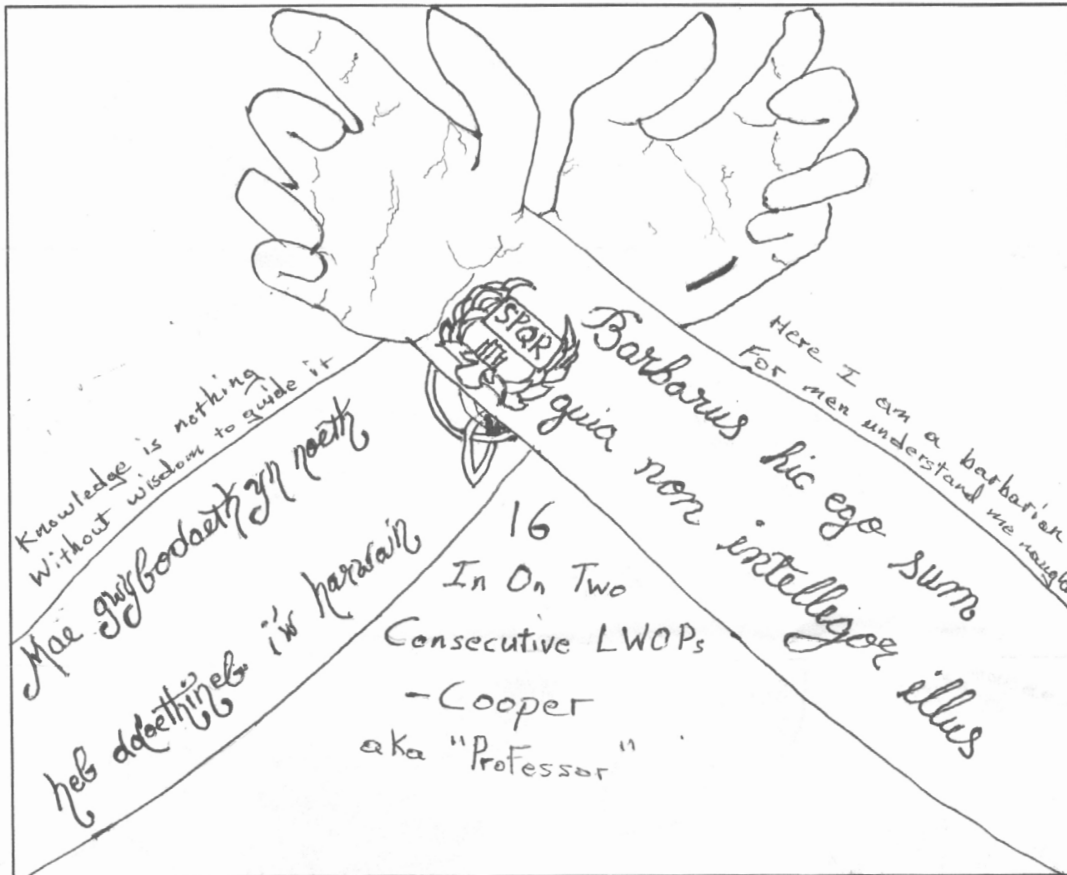 Knowledge is nothing
Without wisdom to guide it
Mae gwybodaeth yn noeth
heb ddoethineb i'w harwain
SPQR
Barbarus hic ego sum
quia non intellegor illus
Here I am a barbarian
For men understand me naught
16
In On Two
Consecutive LWOPs
-Cooper
aka "Professor"